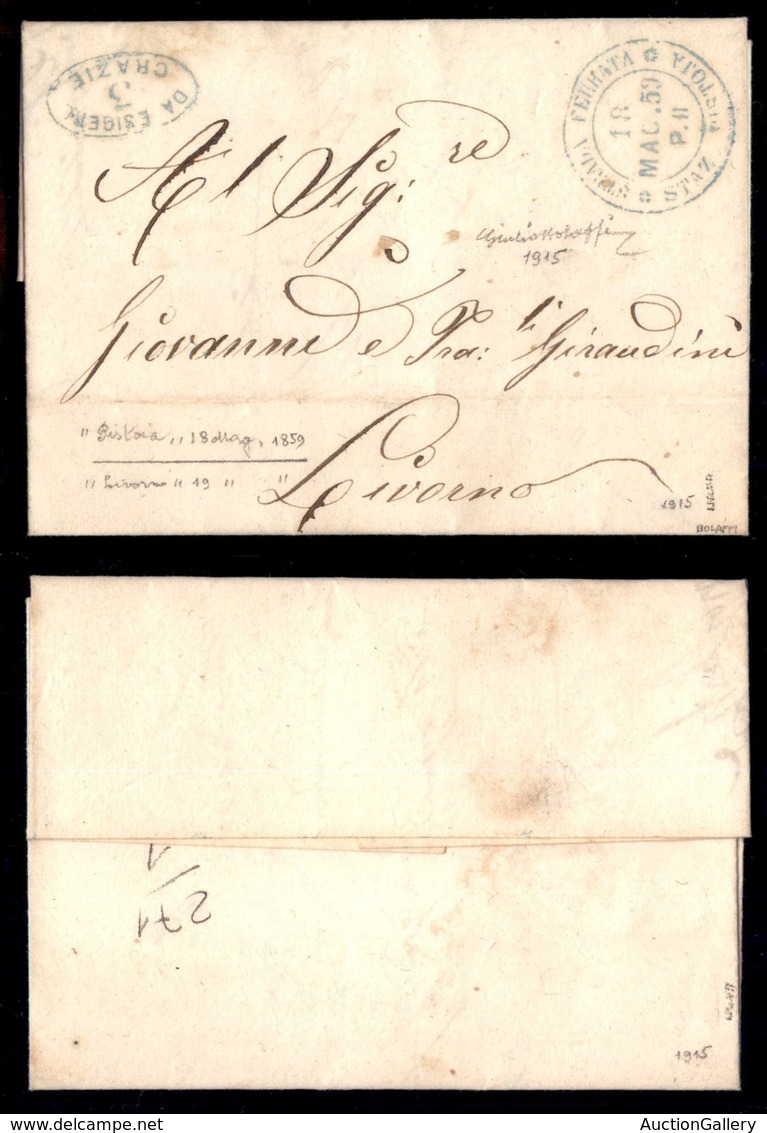 DA ESIGERE
3
CRAZIE
STRADA FERRATA
STAZ. PISTOIA
18
MAG. 59
P. II
Al Sig:re
1915
Giovanni e Fra:lli Giraudini
" Pistoia „ 18 Mag. 1859
" Livorno " 19 " "
Livorno
1915
BOLAFFI
1
271
1915
AuctionGallery